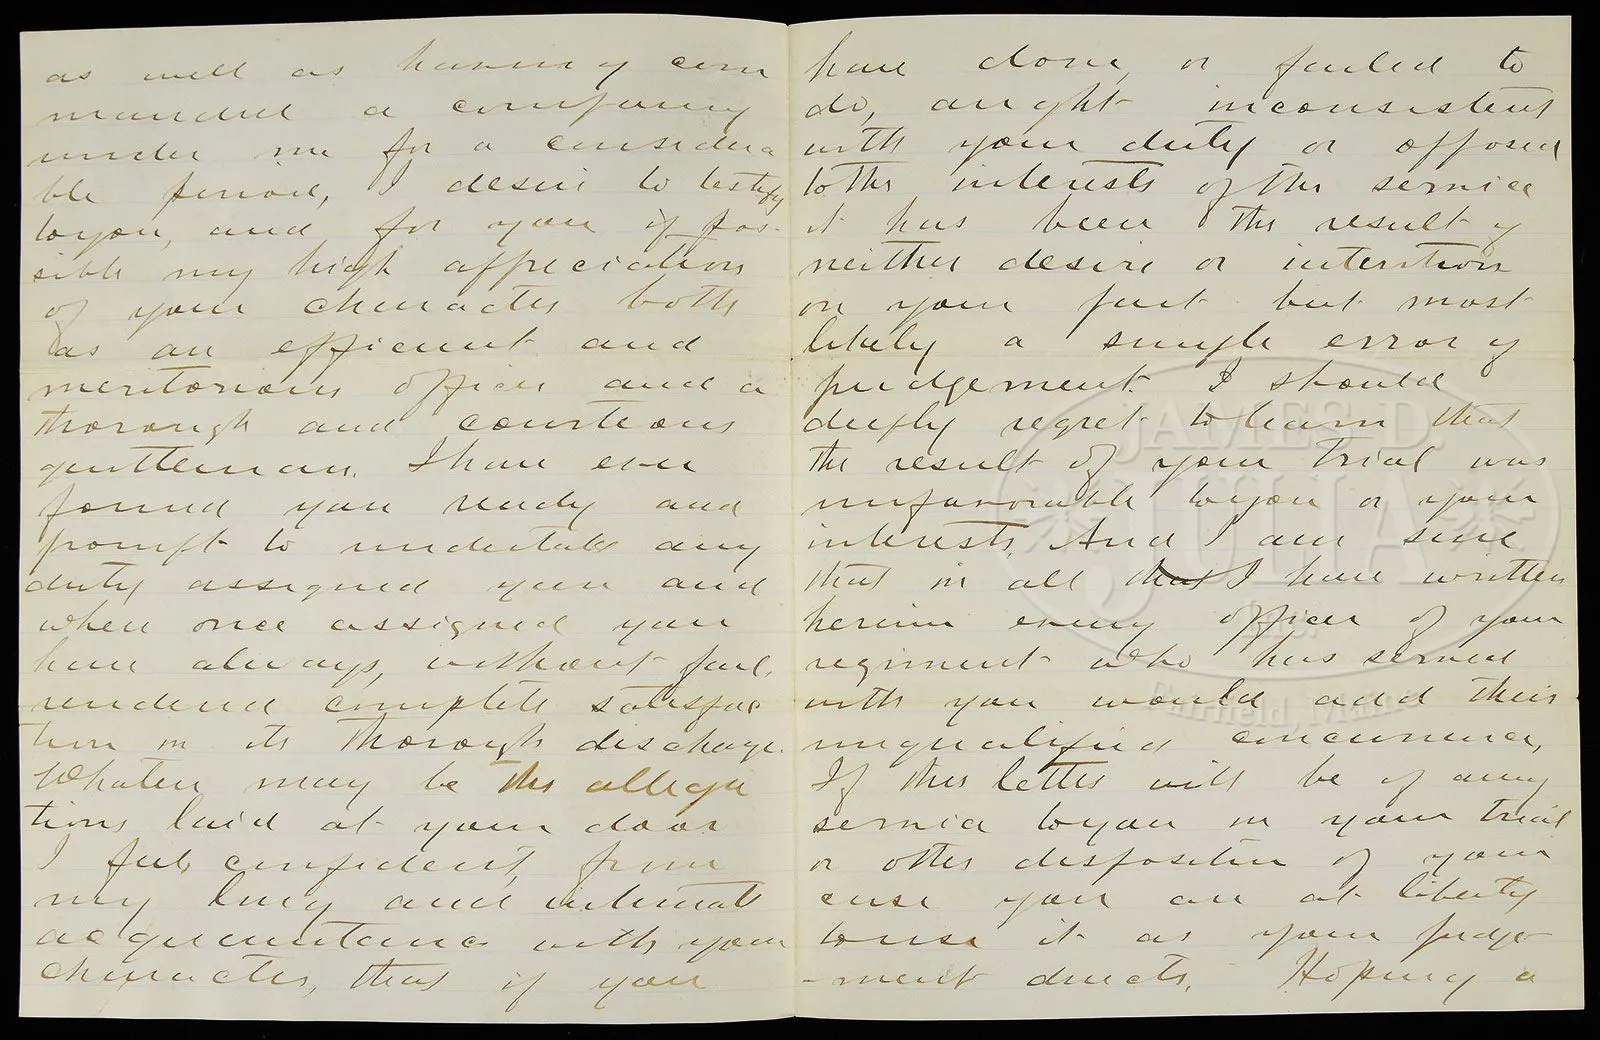 as well as having com
manded a company
under me for a considera
ble period, I desire to testify
to you, and for you if pos-
sible my high appreciation
of your character both
as an efficient and
meritorious officer and a
thorough and courteous
gentleman. I have ever
found you ready and
prompt to undertake any
duty assigned you and
when once assigned you
have always, without fail,
rendered complete satisfac
tion in its thorough discharge.
Whatever may be the allega
tions laid at your door
I feel confident, from
my long and intimate
acquaintance with your
character, that if you
have done, or failed to
do, aught inconsistent
with your duty or opposed
to the interests of the service
it has been the result of
neither desire or intention
on your part but most
likely a simple error of
judgement. I should
deeply regret to learn that
the result of your trial was
unfavorable to you or your
interests. And I am sure
that in all that I have written
herein every officer of your
regiment who has served
with you would add their
unqualified concurrence,
If this letter will be of any
service to you in your trial
or other disposition of your
case you are at liberty
to use it as your judge-
-ment directs. Hoping a
JAMES D.
JULIA
INC.
Fairfield, Maine